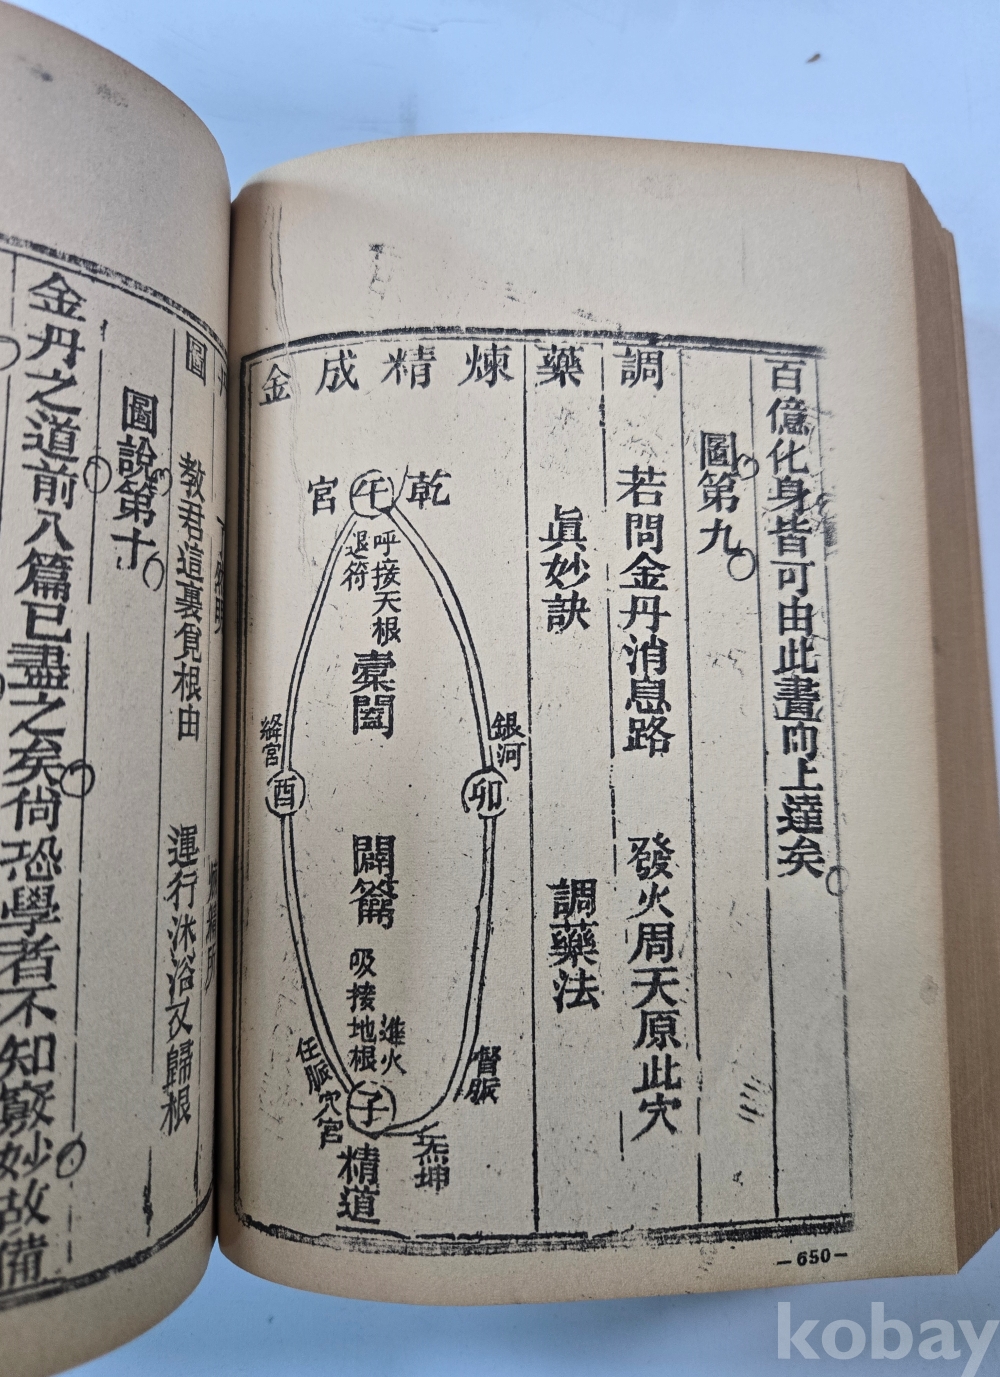 百億化身皆可由此晝而上達矣
圖第九
調
若問金丹消息路 發火周天原此穴
藥
眞妙訣 調藥法
煉精成金
乾
午
宮
呼接天根
退符
橐闔
銀河
卯
絳宮
酉
闢籥
吸接地根
進火
督脈
任脈
子
穴宮
炁坤
精道
圖
教君這裏覓根由 運行沐浴又歸根
圖說第十
金丹之道前八篇已盡之矣尙恐學者不知竅妙故備
-650-
kobay